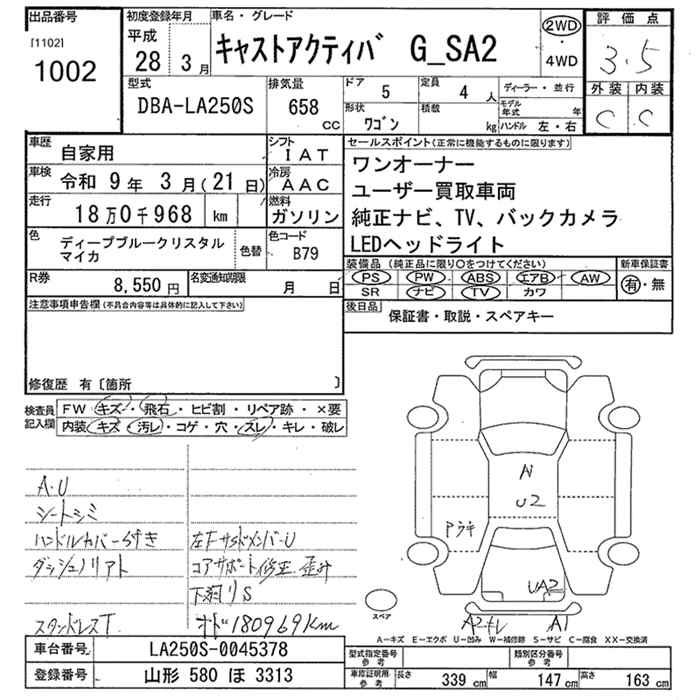 出品番号
[1102]
1002
初度登録年月
平成
28 3月
車名・グレード
キャストアクティバ G_SA2
2WD
・
4WD
評価点
3.5
外装 内装
C C
型式
DBA-LA250S
排気量
658
cc
ドア
5
定員
4 人
形状
ワゴン
積載
kg
ディーラー・並行
モデル年式 年
ハンドル 左・右
車歴
自家用
シフト
IAT
車検
令和 9年 3月(21日)
冷房
AAC
走行
18万0千968 km
燃料
ガソリン
色
ディープブルークリスタル
マイカ
色替
色コード
B79
R券
8,550 円
名変通知期限
月 日
セールスポイント(正常に機能するものに限ります)
ワンオーナー
ユーザー買取車両
純正ナビ、TV、バックカメラ
LEDヘッドライト
装備品 (純正品に限り○をつけてください)
PS PW ABS エアB AW
SR ナビ TV カワ
新車保証書
有・無
後日品
保証書・取説・スペアキー
注意事項申告欄(不具合内容等は具体的に記入して下さい)
修復歴 有〔箇所 〕
検査員
記入欄
FW キズ・飛石・ヒビ割・リペア跡・×要
内装 キズ 汚レ・コゲ・穴・スレ・キレ・破レ
A・U
シートシミ
ハンドルカバー
左Fサイドメンバー・U
コアサポート修正 歪み
下廻りS
スタッドレスT
オド180969km
A1
U2
UA2
A1
スペア
A−キズ E−エクボ U−凹み W−補修跡 S−サビ C−腐食 XX−交換済
車台番号
LA250S-0045378
登録番号
山形 580 ほ 3313
型式指定番号
参考
類別区分番号
参考
車庫証明用
参考
長さ 339 cm
幅 147 cm
高さ 163 cm